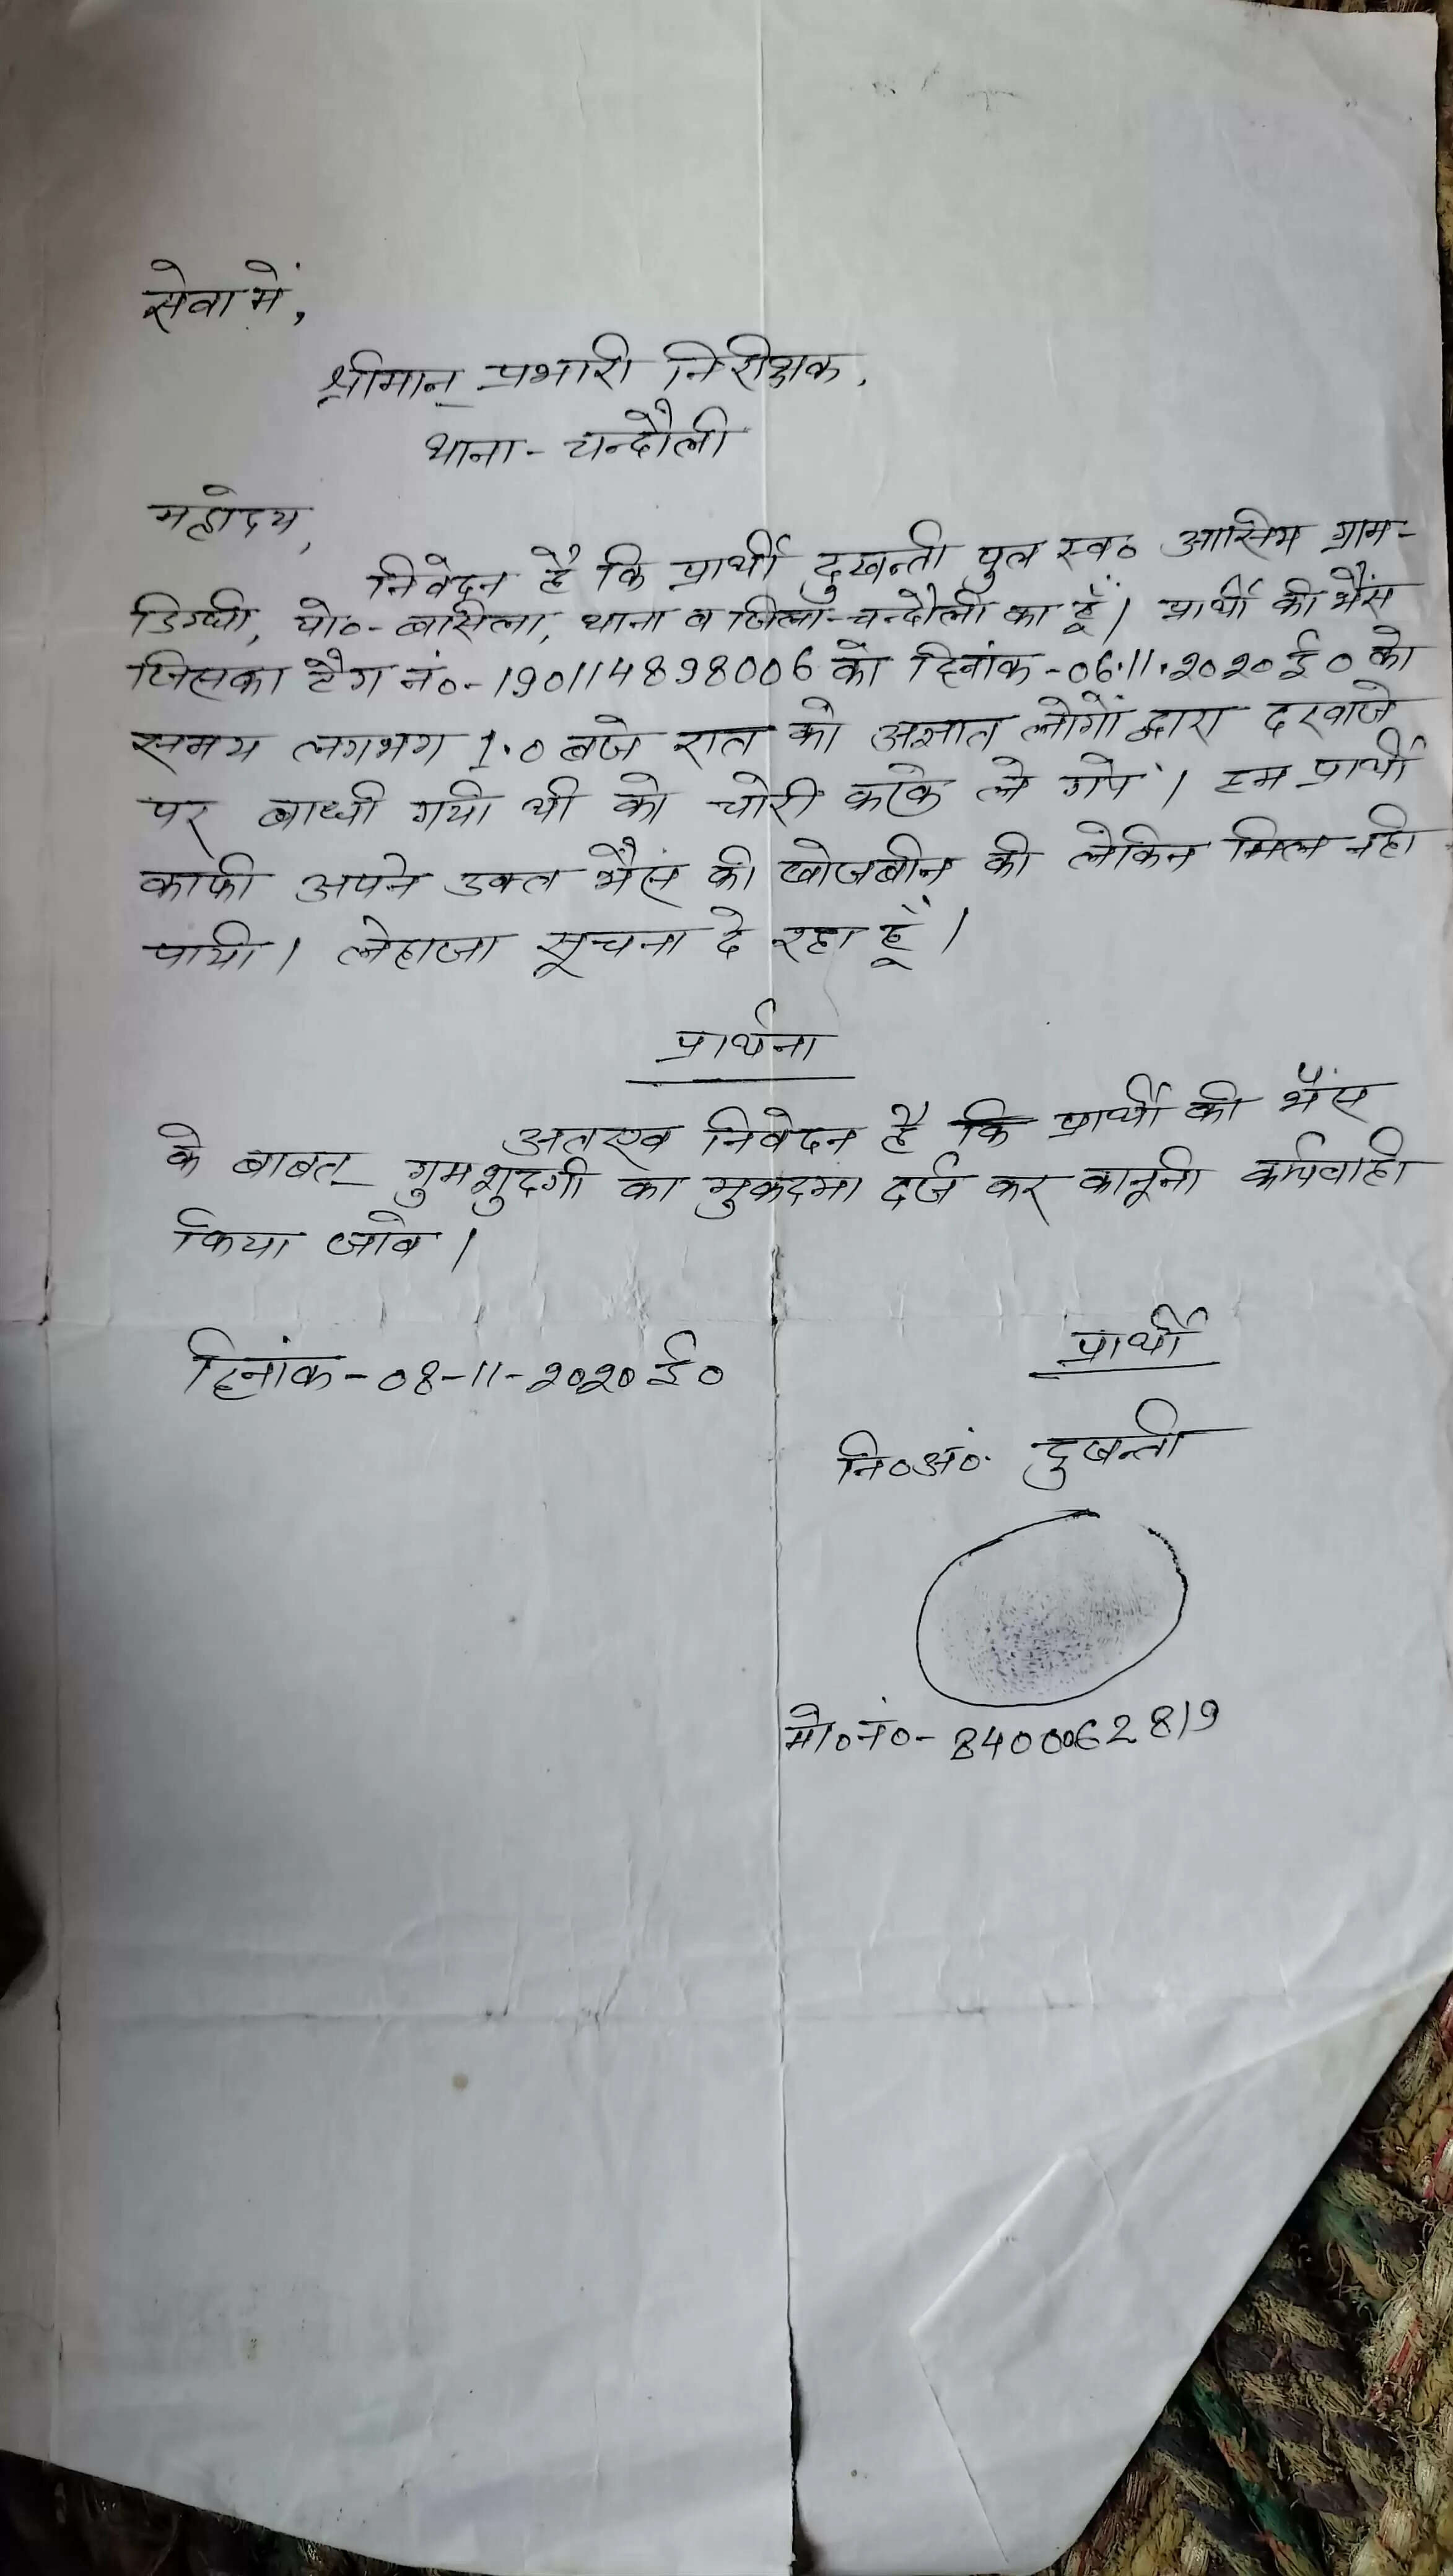 सेवा में,
श्रीमान् प्रभारी निरीक्षक,
थाना - चन्दौली
महोदय,
निवेदन है कि प्रार्थी दुखन्ती पुत्र स्व० आसिम ग्राम-
डिग्घी, पो०- बासिला, थाना व जिला-चन्दौली का हूँ। प्रार्थी की भैंस
जिसका टैग नं०-190114898006 को दिनांक -06.11.2020 ई० को
समय लगभग 1.0 बजे रात को अज्ञात लोगों द्वारा दरवाजे
पर बाधी गयी थी को चोरी करके ले गये। हम प्रार्थी
काफी अपने उक्त भैंस की खोजबीन की लेकिन मिल नही
पायी। लेहाजा सूचना दे रहा हूँ।
प्रार्थना
अतएव निवेदन है कि प्रार्थी की भैंस
के बाबत् गुमशुदगी का मुकदमा दर्ज कर कानूनी कार्यवाही
किया जावे।
दिनांक - 08-11-2020 ई०
प्रार्थी
नि०अं० दुखन्ती
मो०नं०- 8400062819